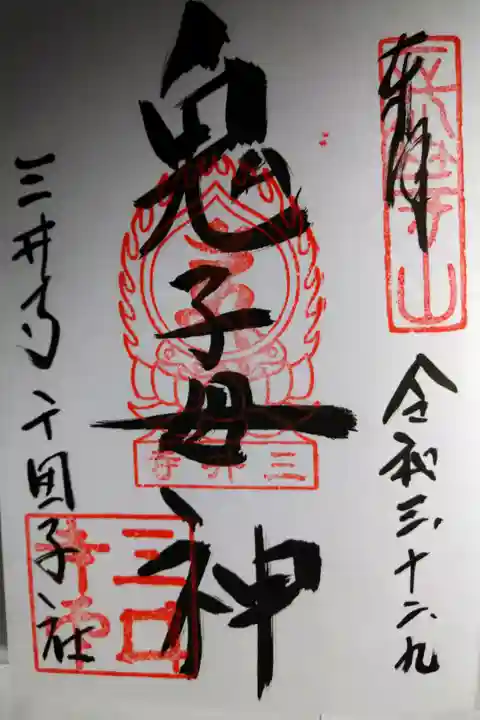 奉拝
長等山
令和三、十二、九
鬼子母神
三井寺
三井寺 千団子社